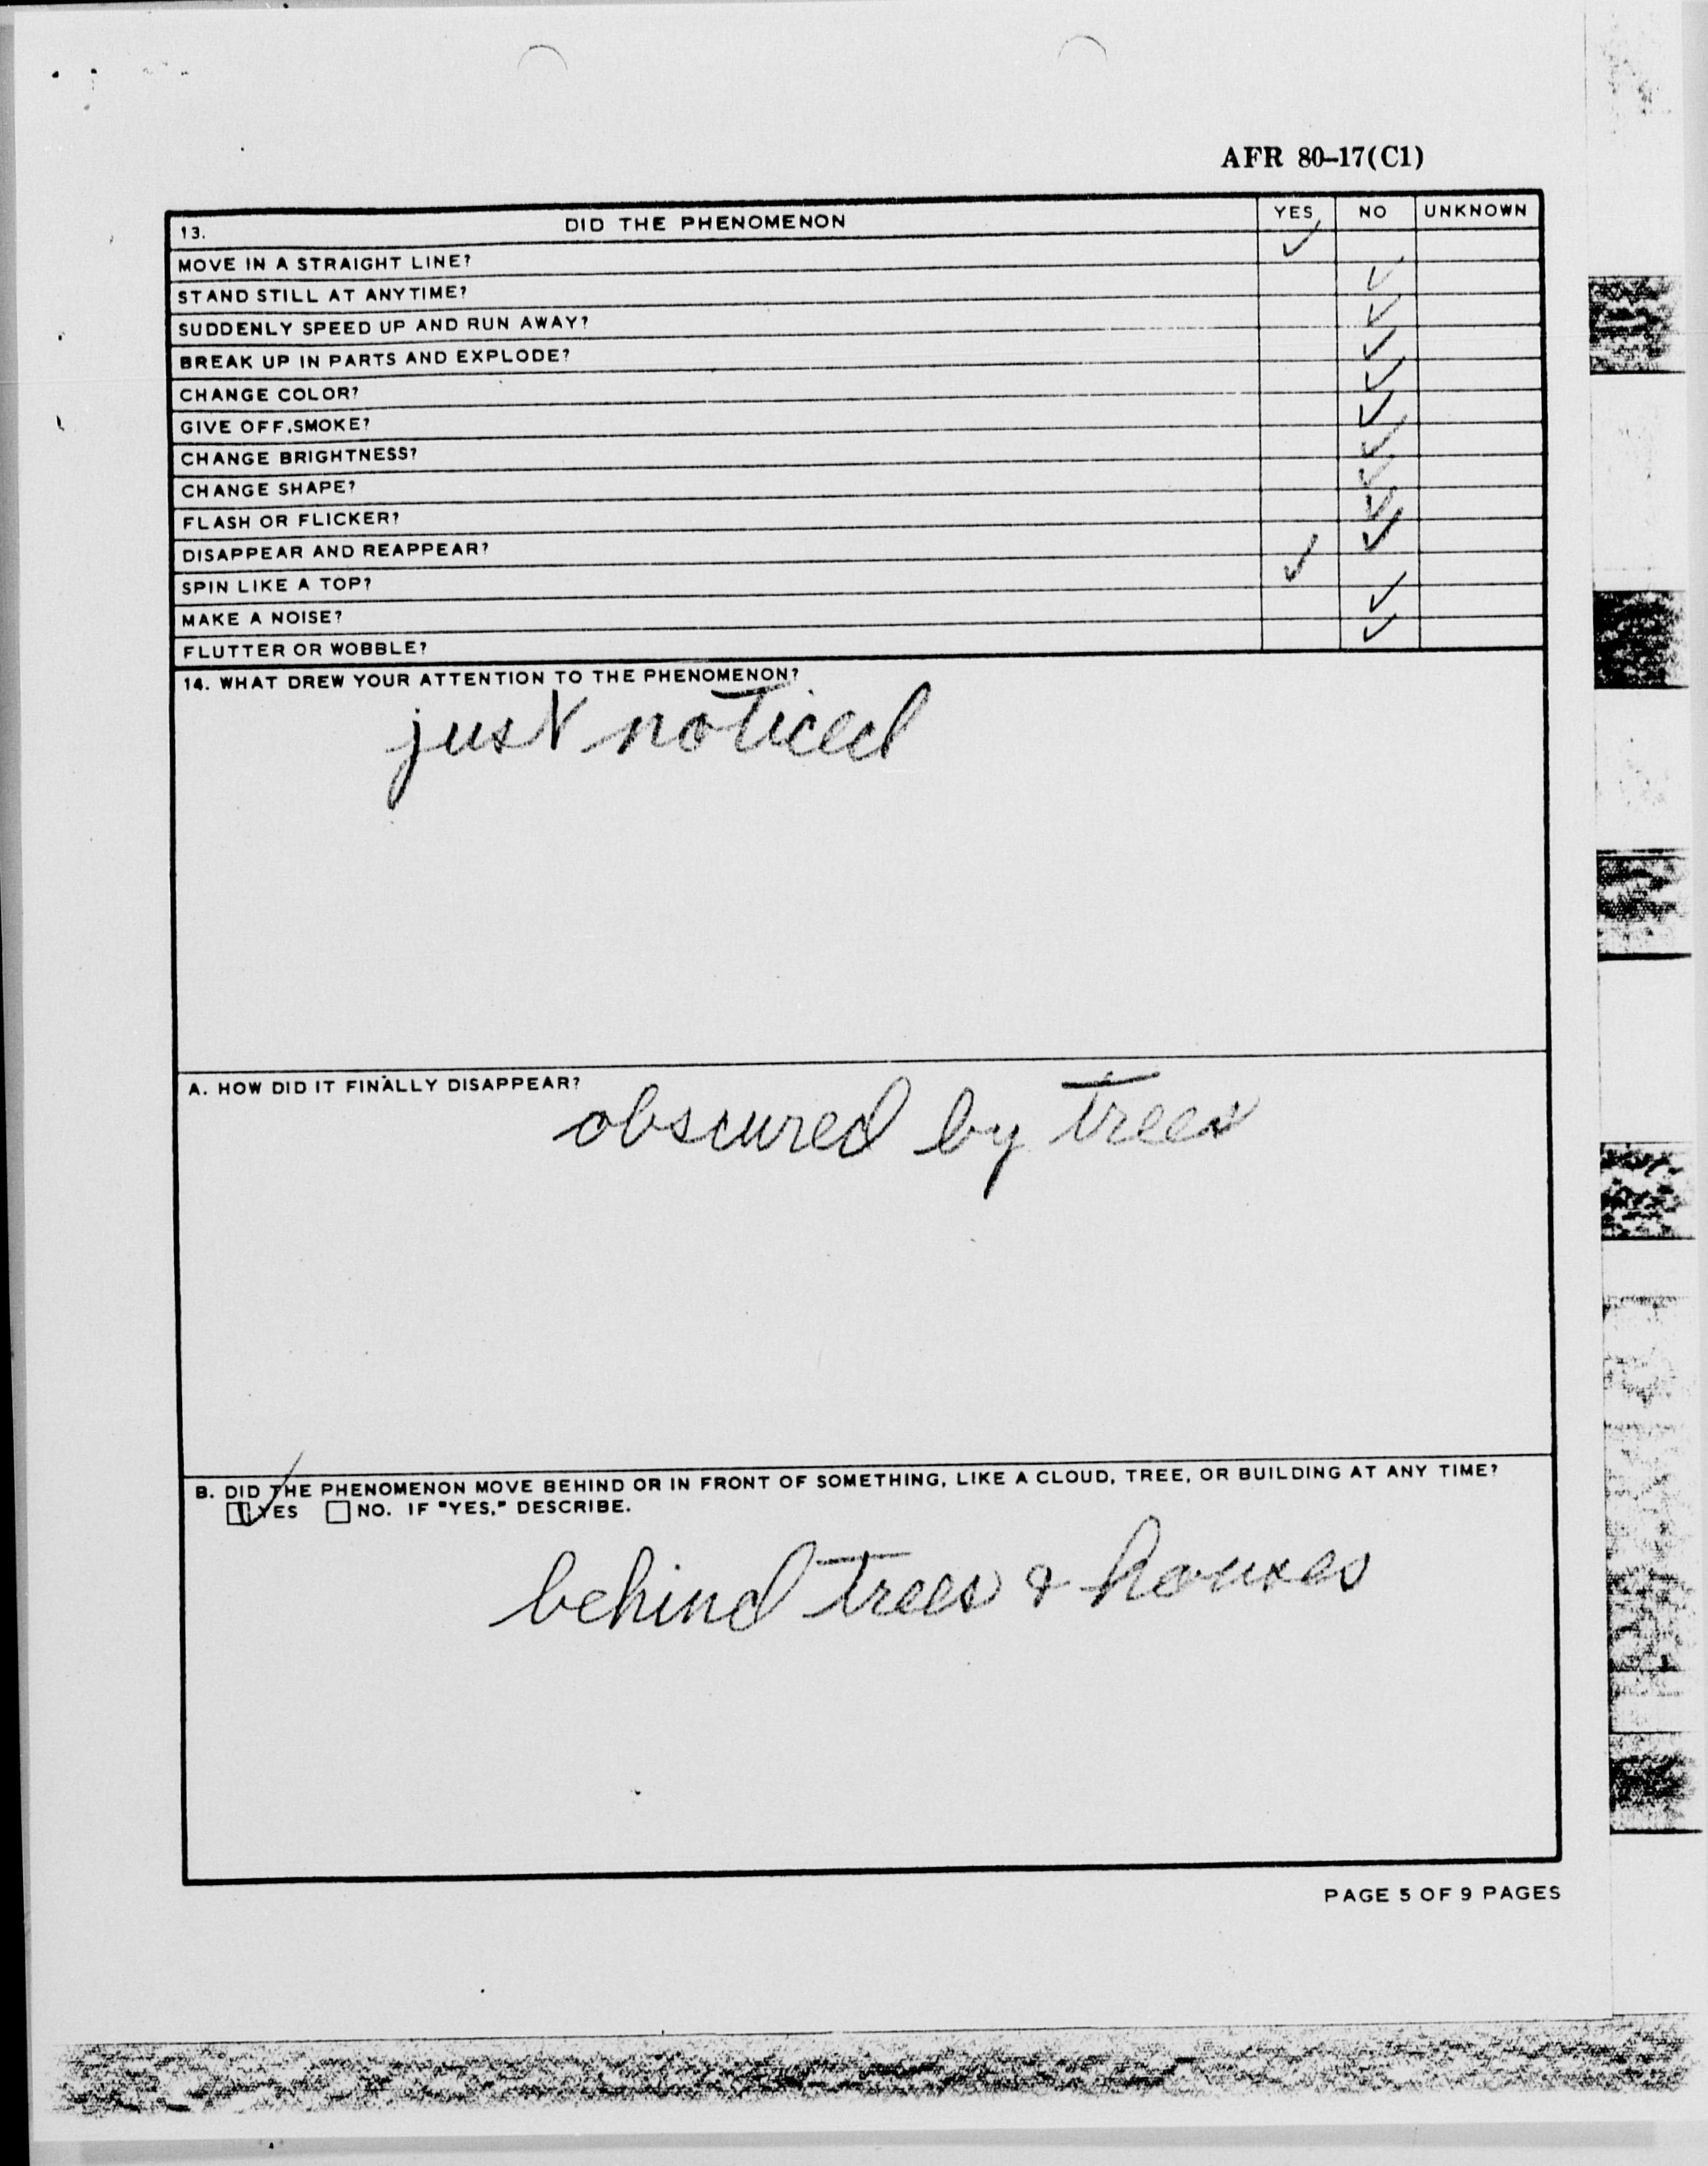 AFR 80–17(C1)
13. DID THE PHENOMENON YES NO UNKNOWN
MOVE IN A STRAIGHT LINE? ✓
STAND STILL AT ANYTIME? ✓
SUDDENLY SPEED UP AND RUN AWAY? ✓
BREAK UP IN PARTS AND EXPLODE? ✓
CHANGE COLOR? ✓
GIVE OFF SMOKE? ✓
CHANGE BRIGHTNESS? ✓
CHANGE SHAPE? ✓
FLASH OR FLICKER? ✓
DISAPPEAR AND REAPPEAR? ✓
SPIN LIKE A TOP? ✓
MAKE A NOISE? ✓
FLUTTER OR WOBBLE? ✓
14. WHAT DREW YOUR ATTENTION TO THE PHENOMENON?
just noticed
A. HOW DID IT FINALLY DISAPPEAR?
obscured by trees
B. DID THE PHENOMENON MOVE BEHIND OR IN FRONT OF SOMETHING, LIKE A CLOUD, TREE, OR BUILDING AT ANY TIME?
☑ YES ☐ NO. IF "YES," DESCRIBE.
behind trees & houses
PAGE 5 OF 9 PAGES